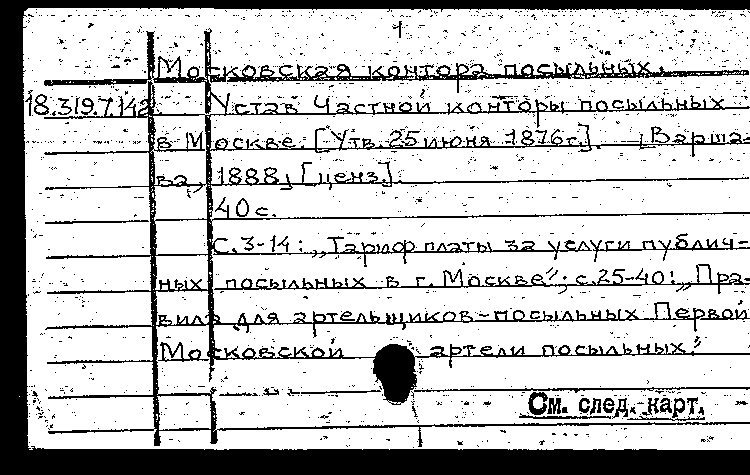 1
Московская контора посыльных.
18.319.7.142. Устав Частной конторы посыльных
в Москве. [Утв. 25 июня 1876 г.]. [Варша-
ва, 1888, [ценз.].
40 с.
С. 3-14: „Тариф платы за услуги публич-
ных посыльных в г. Москве"; с. 25-40: „Пра-
вила для артельщиков-посыльных Первой
Московской артели посыльных."
См. след. карт.